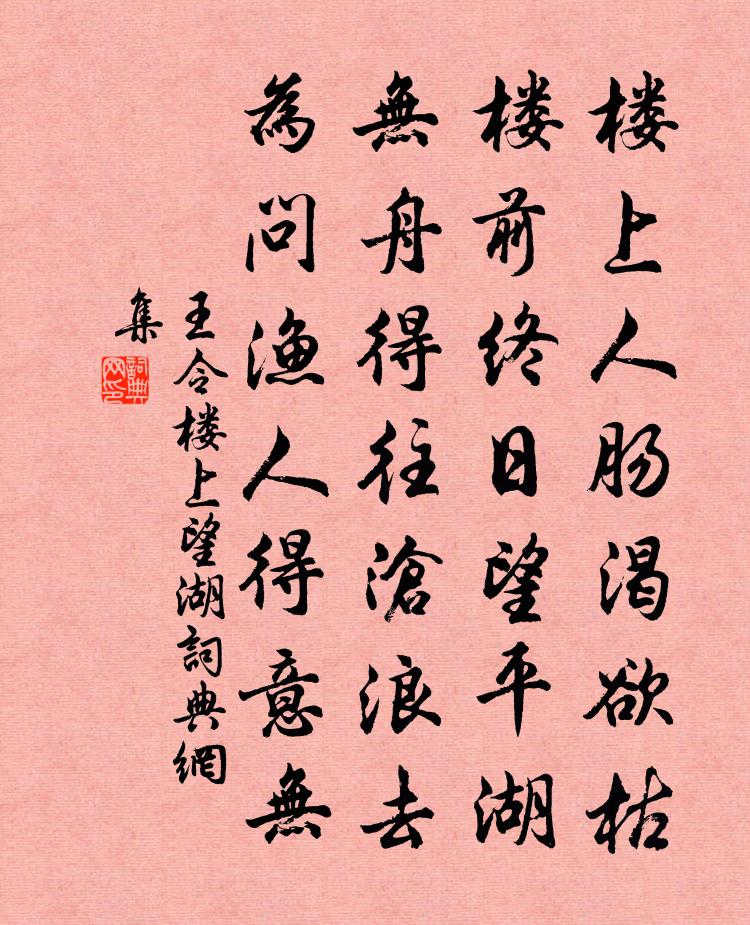 楼上人肠渴欲枯
楼前终日望平湖
無舟得往滄浪去
為问渔人得意無
王令楼上望湖詞典網
集
詞典
网印